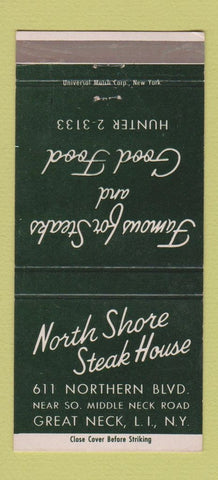 Universal Match Corp., New York
HUNTER 2-3133
Famous for Steaks
and
Good Food
North Shore
Steak House
611 NORTHERN BLVD.
NEAR SO. MIDDLE NECK ROAD
GREAT NECK, L. I., N.Y.
Close Cover Before Striking